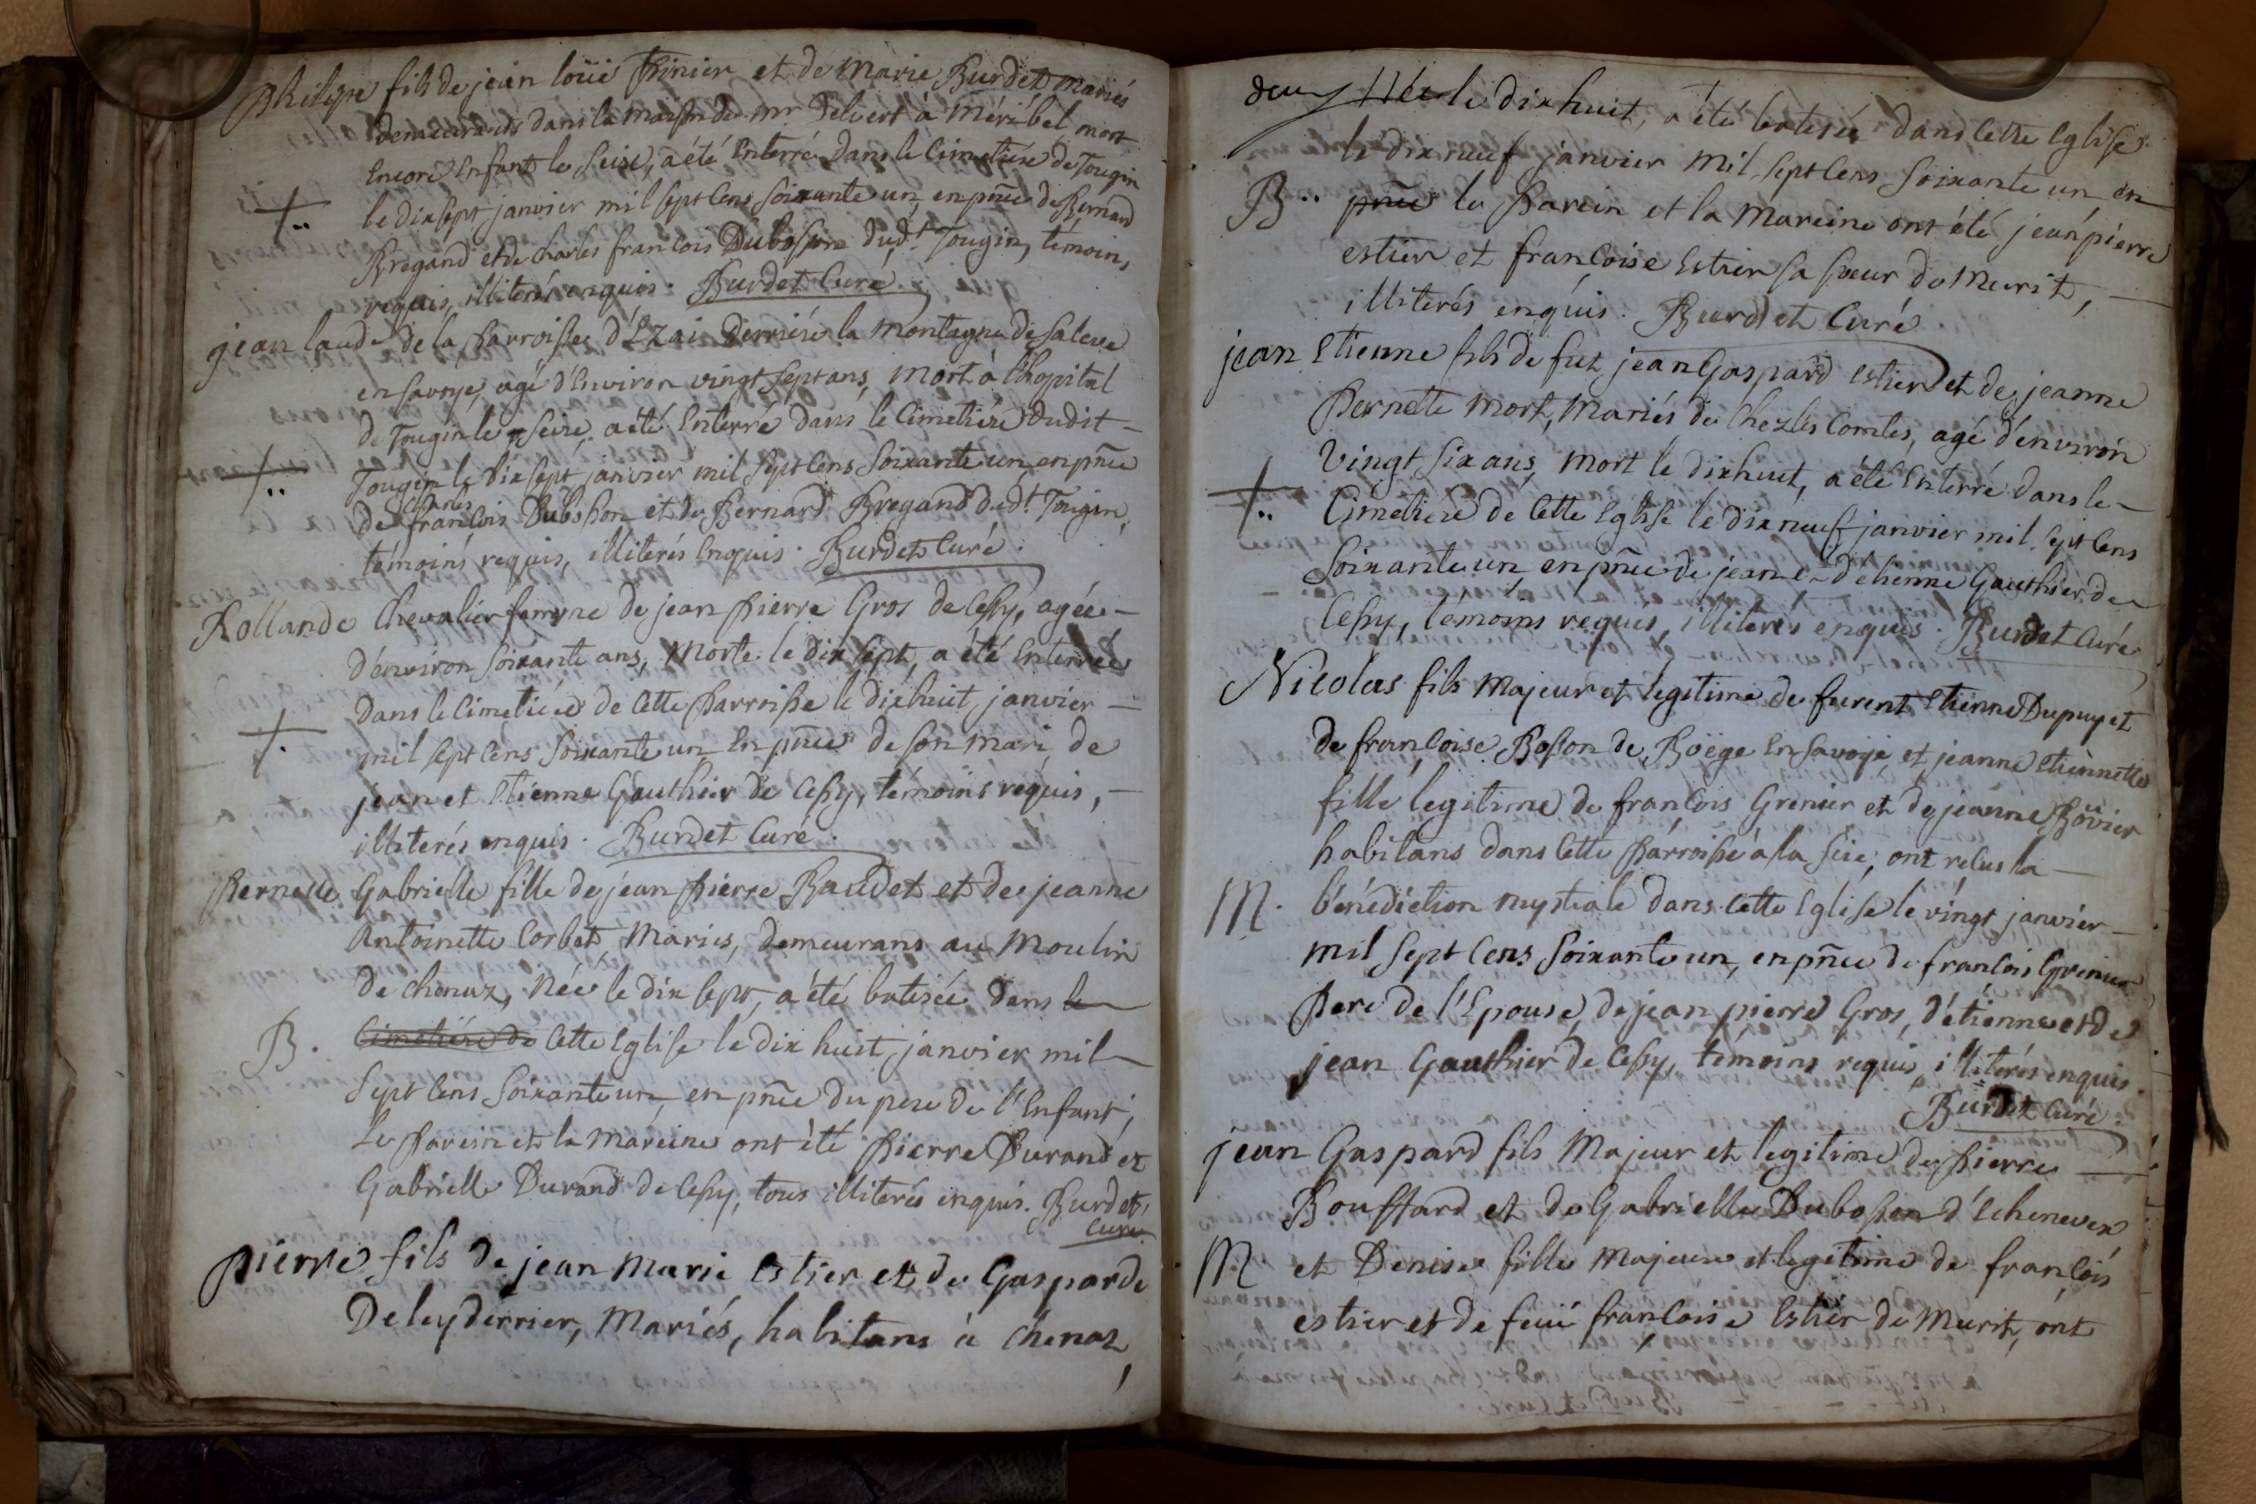 Philipe fils de jean loüis Prinier et de Marie Burdet mariés
demeurants dans la maison de mr Delvert à Méribel mort
Encore Enfant le Seize, a été Enterré dans le Cimetiére de Tougin
le dix sept janvier mil sept Cens Soixante un, en pñce de Bernard
+..
Bregand et de Charles francois Dubosson dud.t Tougin, témoins
requis, illiterés enquis. Burdet Curé
jean laude de la parroisse d'Ezai Derriére la Montagne de Saleve
en Savoye, agé d'Environ vingt Sept ans, Mort à l'hopital
de Tougin le Seize, a été Enterré dans le Cimetiére dudit
+..
Tougin le dix sept janvier mil Sept Cens Soixante un, en pñce
Charles
de francois Dubosson et de Bernard Bregand dud.t Tougin,
témoins requis, illiterés Enquis. Burdet Curé.
Rollande Chevalier femme de jean pierre Gros de Cessy, agée
d'environ Soixante ans, Morte le dix Sept, a été Enterrée
dans le Cimetiére de Cette parroisse le dix huit janvier
+.
mil sept Cens Soixante un En pñce de son mari, de
jean et Etienne Gauthier de Cessy, témoins requis,
illiterés enquis. Burdet Curé.
Pernette Gabrielle fille de jean pierre Baudet et de jeanne
Antoinette Corbet Mariés, demeurans au Moulin
de chenaz, Née le dix sept, a été batisée dans le
B.
Cimetiére de Cette Eglise le dix huit janvier mil
Sept Cens Soixante un, en pñce du pere de l'Enfant;
Le parein et la Mareine ont été pierre Durand et
Gabrielle Durand de Cessy, tous illiterés enquis. Burdet
Curé.
pierre fils de jean Marie Estier et de Gasparde
Deleyderrier, Mariés, habitans à chenaz,
Née le dixhuit, a été batisée dans Cette Eglise
le dix neuf janvier mil sept Cens Soixante un en
B..
pñce le parein et la Mareine ont été jean pierre
estier et francoise Estier sa sœur de Murit,
illiterés enquis. Burdet Curé.
jean Etienne fils de fut jean Gaspard Estier et de jeanne
Pernette Mort, Mariés de Chez les Comtes, agé d'environ
Vingt Six ans, Mort le dixhuit, a été Enterré dans le
+..
Cimetiére de Cette Eglise le dix neuf janvier mil Sept Cens
Soixante un en pñce de jean et d'etienne Gauthier de
Cessy, témoins requis, illiterés enquis. Burdet Curé
Nicolas fils Majeur et legitime de furent Etienne Dupuy et
de francoise Bosson de Boëge En Savoye, et jeanne Etiennette
fille legitime de francois Grenier et de jeanne Bouvier
habitans dans Cette parroisse à la Scie, ont recus la
M.
bénédiction nuptiale dans Cette Eglise le vingt janvier
mil Sept Cens Soixante un, en pñce de francois Grenier
Pere de l'Epouse, de jean pierre Gros, d'étienne et de
jean Gauthier de Cessy, témoins requis, illiterés enquis.
Burdet Curé
jean Gaspard fils Majeur et legitime de pierre
Bouffard et de Gabrielle Dubosson d'Echenevex
M
et Denise fille Majeure et legitime de francois
estier et de feüe francoise Estier de Murit, ont